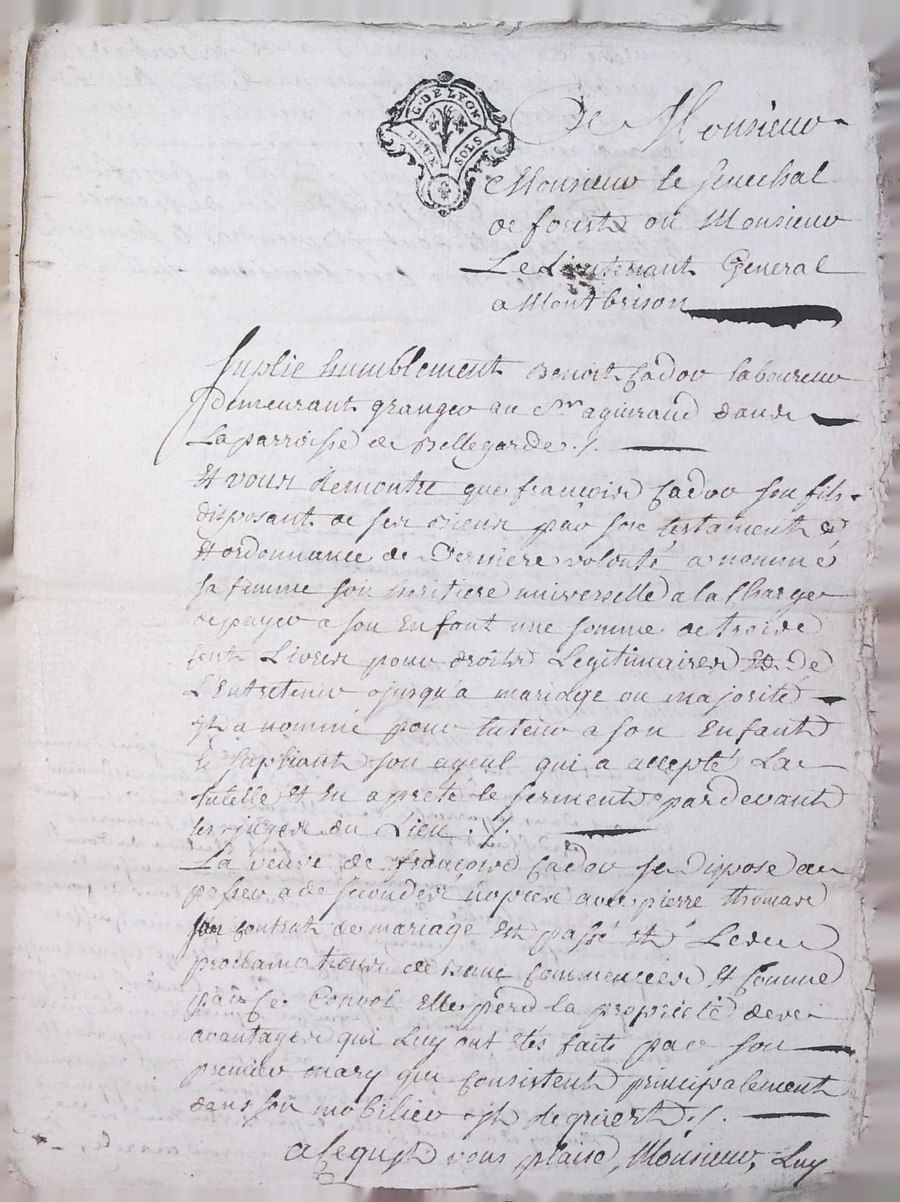 G. DE LYON
DEUX SOLS
De Monsieur
Monsieur le senechal
de forest ou Monsieur
Le Lieutenant General
a Montbrison
suplie humblement Benoit Cador laboureur
demeurant granger au Sr aguiraud dans
La parroisse de Bellegarde ./.
Et vous demontre que francois Cador son fils
disposant de ses biens par son testament
et ordonnance de derniere volonté a nommé
sa femme son heritiere universelle a la charge
de payer a son Enfant une somme de trois
cent Livres pour droits Legitimaires Et de
L'Entretenir jusqu'a mariage ou majorité
Il a nommé pour tuteur a son Enfant
le supliant son ayeul qui a accepté La
tutelle Et En a preté le serment pardevant
les juges du Lieu ./.
La veuve de francois Cador se dispose a
passer a de secondes nopces avec pierre thomas
son contrat de mariage Est passé Et Les
proclamations de banc commencées Et comme
par ce convol Elle perd la proprieté des
avantages qui Luy ont etes faits par son
premier mary qui consistent principalement
dans son mobilier Il requiert ./.
a ce qu'il vous plaise, Monsieur, Luy